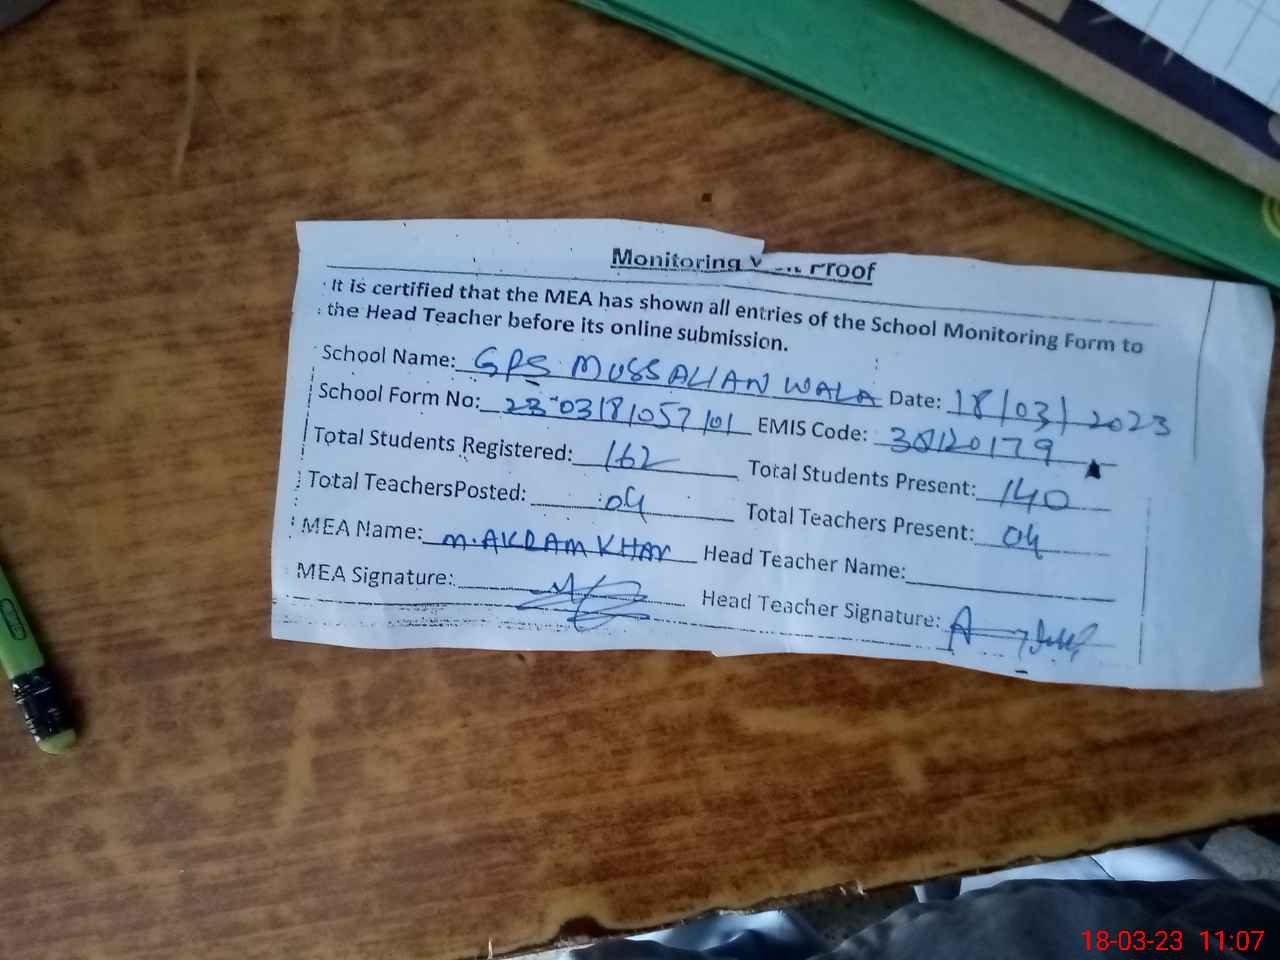 Monitoring Proof
It is certified that the MEA has shown all entries of the School Monitoring Form to
the Head Teacher before its online submission.
School Name: GPS MUSSALIAN WALA Date: 18/03/2023
School Form No: 23-0318/057/01 EMIS Code:
Total Students Registered: 162 Total Students Present: 140
Total TeachersPosted: 04 Total Teachers Present: 04
MEA Name: M. AKRAM KHAN Head Teacher Name:
MEA Signature: Head Teacher Signature:
18-03-23 11:07